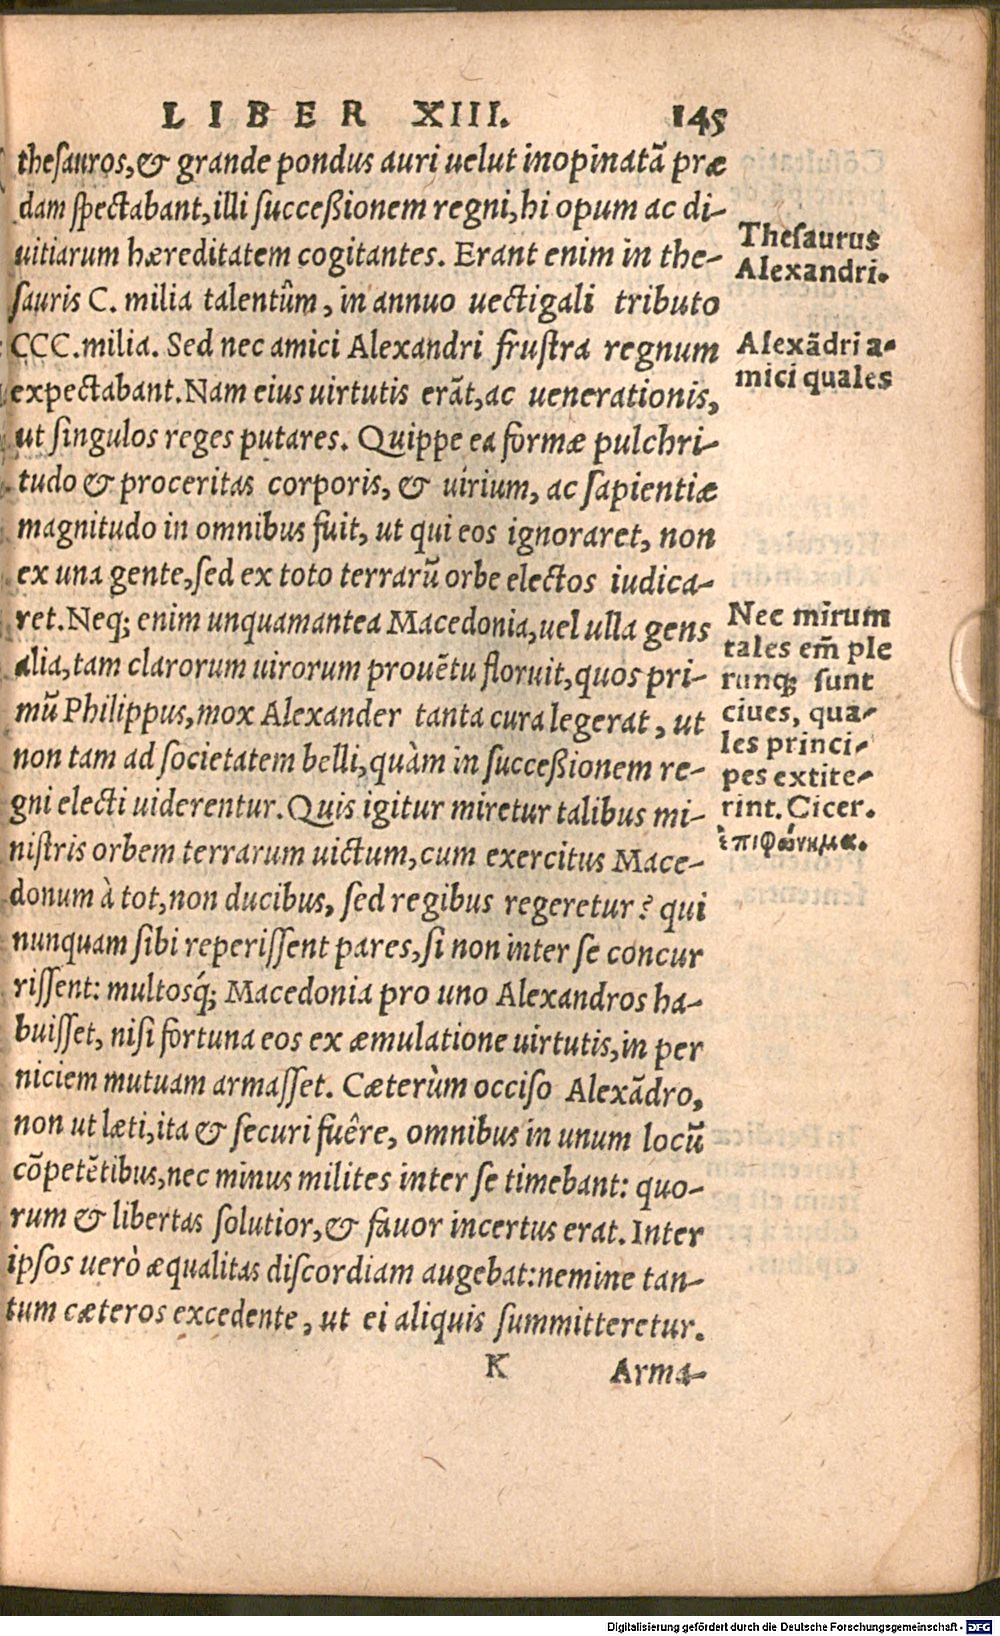 LIBER XIII. 145
thesauros, & grande pondus auri uelut inopinatã præ
dam spectabant, illi successionem regni, hi opum ac di-
uitiarum hæreditatem cogitantes. Erant enim in the-
sauris C. milia talentûm, in annuo uectigali tributo
CCC. milia. Sed nec amici Alexandri frustra regnum
expectabant. Nam eius uirtutis erãt, ac uenerationis,
ut singulos reges putares. Quippe ea formæ pulchri-
tudo & proceritas corporis, & uirium, ac sapientiæ
magnitudo in omnibus fuit, ut qui eos ignoraret, non
ex una gente, sed ex toto terrarũ orbe electos iudica-
ret. Neq; enim unquam antea Macedonia, uel ulla gens
alia, tam clarorum uirorum prouẽtu floruit, quos pri-
mũ Philippus, mox Alexander tanta cura legerat, ut
non tam ad societatem belli, quàm in successionem re-
gni electi uiderentur. Quis igitur miretur talibus mi-
nistris orbem terrarum uictum, cum exercitus Mace-
donum à tot, non ducibus, sed regibus regeretur? qui
nunquam sibi reperissent pares, si non inter se concur
rissent: multosq́; Macedonia pro uno Alexandros ha-
buisset, nisi fortuna eos ex æmulatione uirtutis, in per
niciem mutuam armasset. Cæterùm occiso Alexãdro,
non ut læti, ita & securi fuêre, omnibus in unum locũ
cõpetẽtibus, nec minus milites inter se timebant: quo-
rum & libertas solutior, & fauor incertus erat. Inter
ipsos uerò æqualitas discordiam augebat: nemine tan-
tum cæteros excedente, ut ei aliquis summitteretur.
K Arma-
Thesaurus
Alexandri.
Alexãdri a-
mici quales
Nec mirum
tales em̃ ple
runq; sunt
ciues, qua-
les princi-
pes extite-
rint. Cicer.
ἐπιφώνημα.
Digitalisierung gefördert durch die Deutsche Forschungsgemeinschaft - DFG